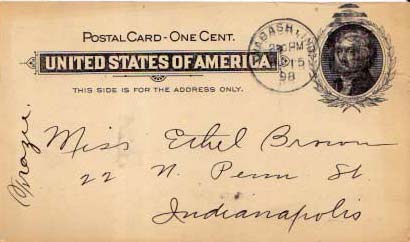 POSTAL CARD - ONE CENT.
UNITED STATES OF AMERICA.
THIS SIDE IS FOR THE ADDRESS ONLY.
WABASH, IND.
PM
15
98
Miss Ethel Brown
22 N. Penn St.
Indianapolis
Mazie.